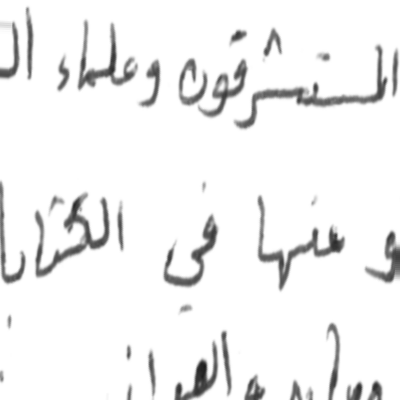 المستشرقون وعلماء ال
و عنها في الكتابا